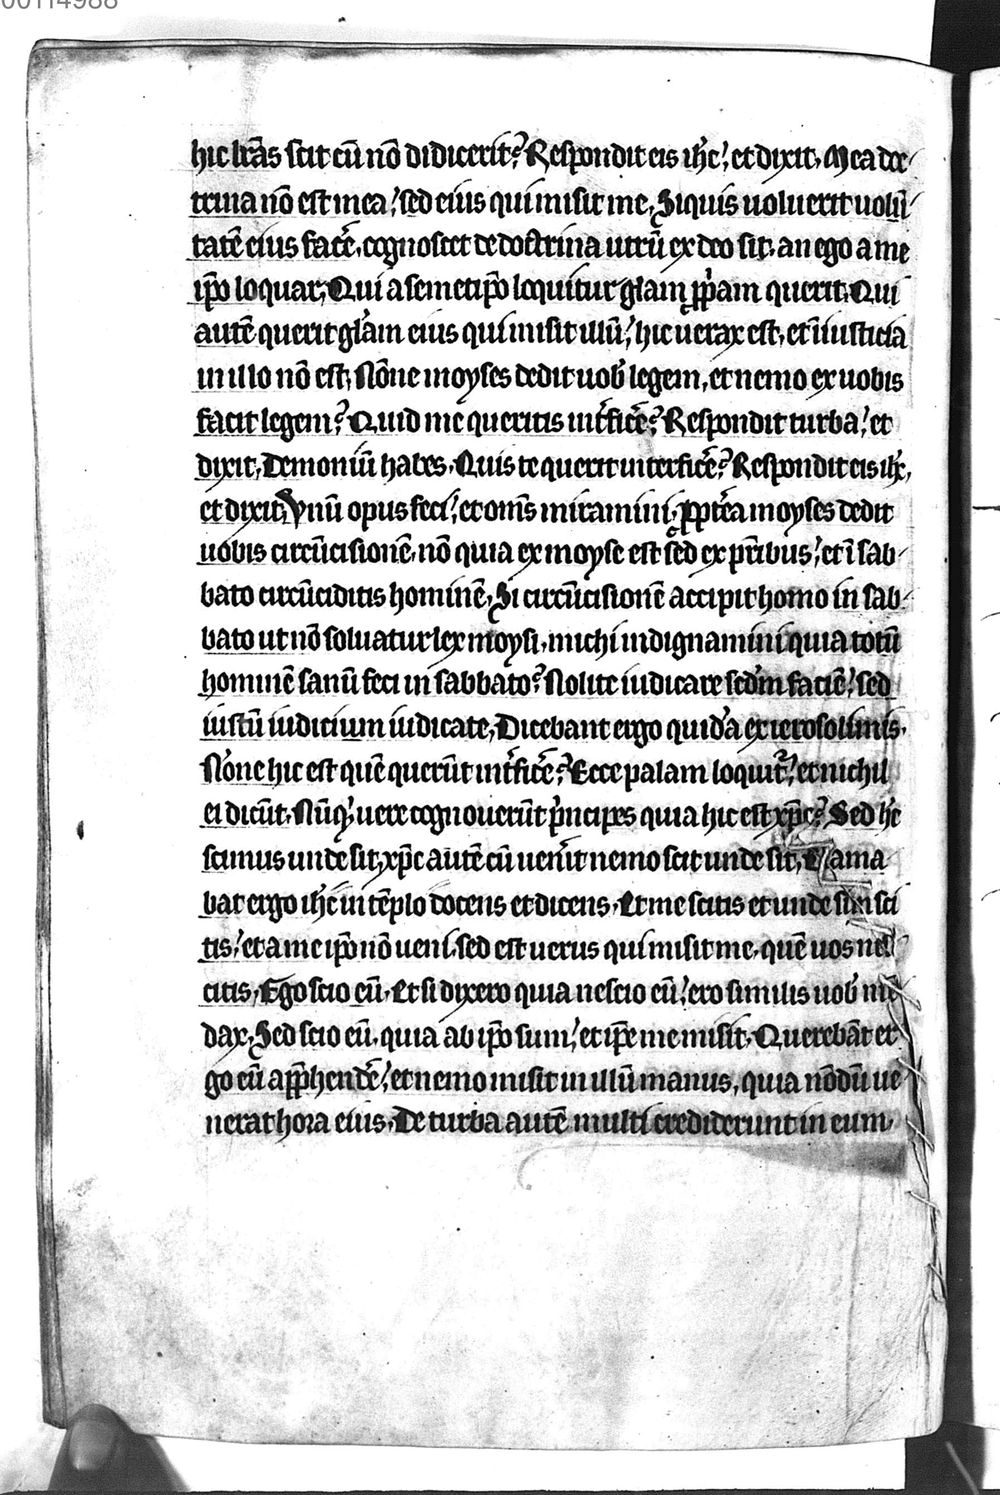 00114988
hic lr̃as scit cũ nõ didicerit? Respondit eis ih̃c, et dixit. Mea doc-
trina nõ est mea, sed eius qui misit me. Siquis uoluerit uolũ-
tatẽ eius facẽ, cognoscet de doctrina utrũ ex deo sit, an ego a me
ip̃o loquar. Qui a semetip̃o loquitur gl̃am pp̃am querit. Qui
autẽ querit gl̃am eius qui misit illũ, hic uerax est, et ĩiusticia
in illo nõ est. Nõne moyses dedit uob̾ legem, et nemo ex uobis
facit legem? Quid me queritis int̾ficẽ? Respondit turba, et
dixit. Demoniũ habes. Quis te querit interficẽ? Respondit eis ih̃c,
et dixit. Vnũ opus feci, et om̃s miramini. ppt̾ea moyses dedit
uobis circũcisionẽ, nõ quia ex moyse est sed ex pr̃ibus, et ĩ sab-
bato circũciditis hominẽ. Si circũcisionẽ accipit homo in sab-
bato ut nõ soluatur lex moysi, michi indignamini quia totũ
hominẽ sanũ feci in sabbato? Nolite iudicare scdm̃ faciẽ, sed
iustũ iudicium iudicate. Dicebant ergo quid̾a ex ierosolimis.
Nõne hic est quẽ querũt int̾ficẽ? Ecce palam loquit᷑, et nichil
ei dicũt. Nũq̃ uere cognouerũt p̾ncipes quia hic est xp̃c? Sed h̾c
scimus unde sit, xp̃c autẽ cũ uen̾it nemo scit unde sit. Clama
bat ergo ih̃c in tẽplo docens et dicens. Et me scitis et unde sim sci
tis, et a me ip̃o nõ ueni, sed est uerus qui misit me, quẽ uos nes
citis. Ego scio eũ. Et si dixero quia nescio eũ, ero similis uob̾ mẽ
dax. Sed scio eũ, quia ab ip̃o sum, et ip̃e me misit. Querebãt er
go eũ app̾hendẽ, et nemo misit in illũ manus, quia nõdũ ue
nerat hora eius. De turba autẽ multi crediderunt in eum,